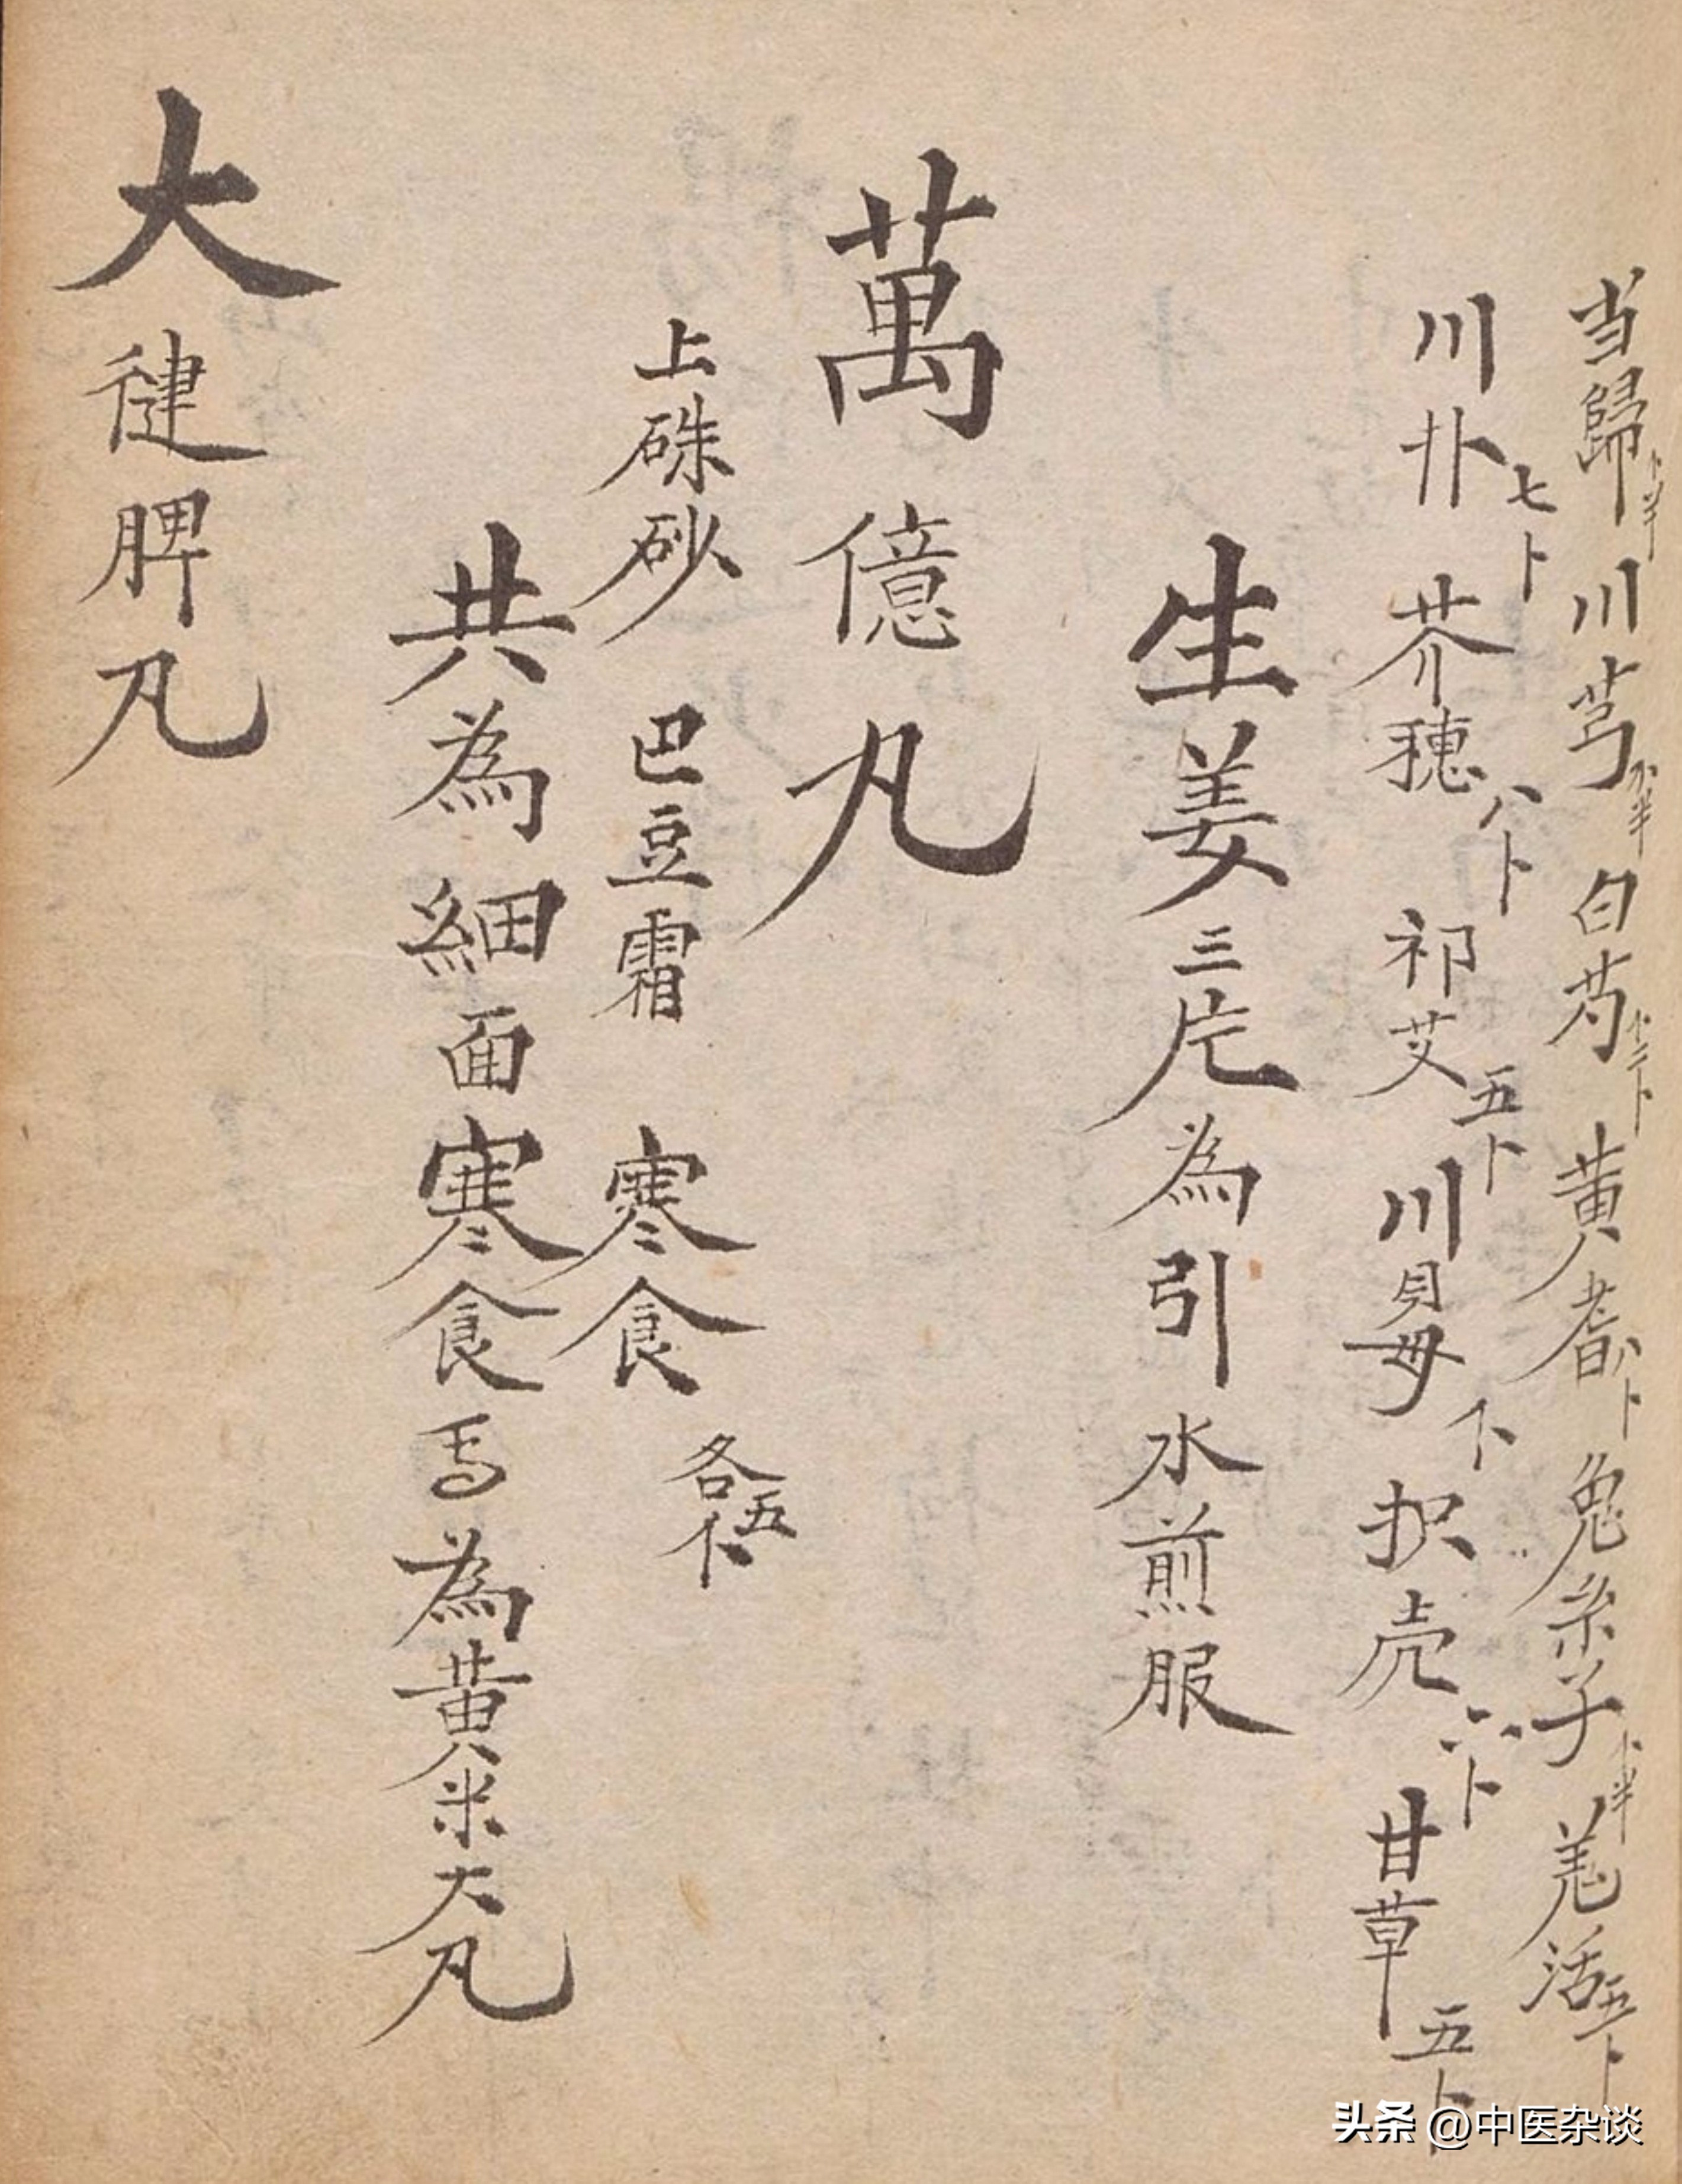 当歸 川芎 白芍 黄耆八卜 兔糸子 羌活五卜
川朴七卜 芥穗八卜 祁艾五卜 川貝母 枳壳六卜 甘草五卜
生姜三片為引水煎服
萬億丸
上硃砂 巴豆霜 寒食 各五
共為細面寒食 為黄米大丸
大健脾丸
头条 @中医杂谈